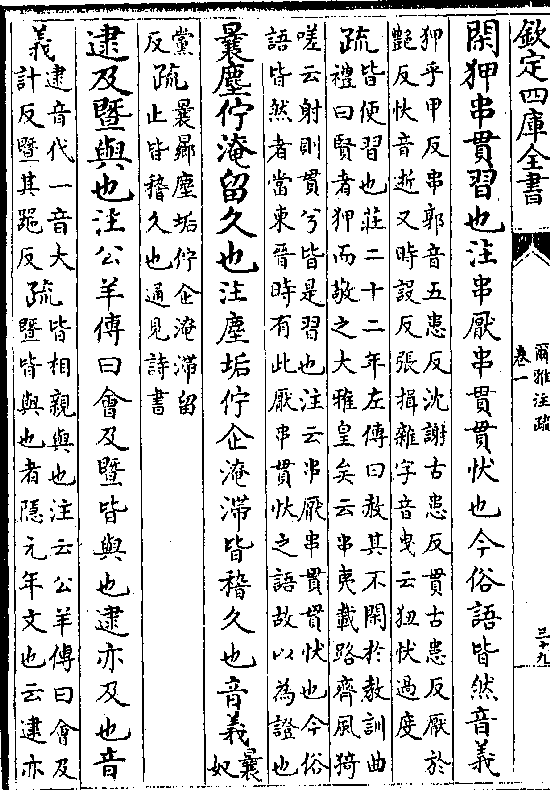 欽定四庫全書
爾雅注疏
卷一
三十九
閑狎串貫習也注串厭串貫貫忕也今俗語皆然音義
狎乎甲反串郭音五患反沈謝古患反貫古患反厭於
豔反忕音逝又時設反張揖雜字音曳云狃忕過度
疏皆便習也莊二十二年左傳曰赦其不閑於教訓曲
禮曰賢者狎而敬之大雅皇矣云串夷載路齊風猗
嗟云射則貫兮皆是習也注云串厭串貫貫忕也今俗
語皆然者當東晉時有此厭串貫忕之語故以為證也
曩塵佇淹留久也注塵垢佇企淹滯皆稽久也音義曩奴
黨反疏曩曏塵垢佇企淹滯留止皆稽久也通見詩書
逮及暨與也注公羊傳曰會及暨皆與也逮亦及也音
義逮音代一音大計反暨其器反疏皆相親與也注云公羊傳曰會及
暨皆與也者隱元年文也云逮亦